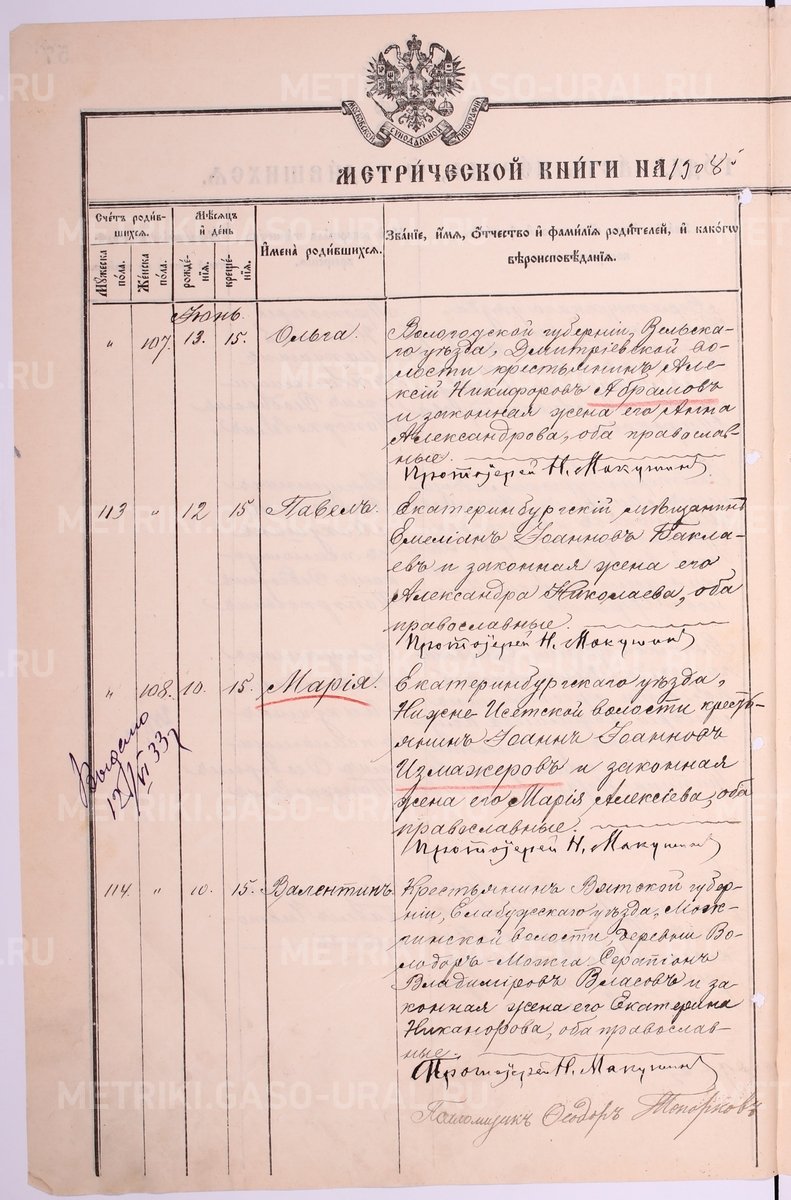 МОСКОВСКОЙ СѴНОДАЛЬНОЙ ТИПОГРАФІИ
МЕТРИ́ЧЕСКОЙ КНИ́ГИ НА 1908
Счетъ роди́в-
шихся.
Мѣсяцъ
и́ де́нь
И҆мена̀ роди́вшихся.
Зва́нїе, и҆́мя, ѻ҆́тчество и҆ фами́лїя роди́телей, и҆ како́гѡ
вѣроисповѣ́данїя.
Мꙋ́жеска по́ла.
Же́нска по́ла.
рожде́-
нїя.
креще́-
нїя.
Іюнь
" 107. 13. 15. Ольга.
Вологодской губерніи, Вельска-
го уѣзда, Дмитріевской во-
лости крестьянинъ Але-
ксій Никифоровъ Абрамовъ
и законная жена его Анна
Александрова, оба православ-
ные.
Протоіерей Н. Макушинъ
113 " 12 15. Павелъ.
Екатеринбургскій мѣщанинъ
Емеліанъ Іоанновъ Бакла-
евъ и законная жена его
Александра Николаева, оба
православные.
Протоіерей Н. Макушинъ
" 108. 10. 15. Марія.
Екатеринбургскаго уѣзда,
Нижне-Исетской волости кресть-
янинъ Іоаннъ Іоанновъ
Измажеровъ и законная
жена его Марія Алексіева, оба
православные.
Протоіерей Н. Макушинъ
Выдано
12/VI 33
114. " 10. 15. Валентинъ.
Крестьянинъ Вятской губер-
ніи, Елабужскаго уѣзда, Мож-
гинской волости, деревни Во-
лодоръ-Можга Серапіонъ
Владиміровъ Власовъ и за-
конная жена его Екатерина
Никанорова, оба православ-
ные.
Протоіерей Н. Макушинъ
Псаломщикъ Ѳеодоръ Топорковъ
METRIKI.GASO-URAL.RU